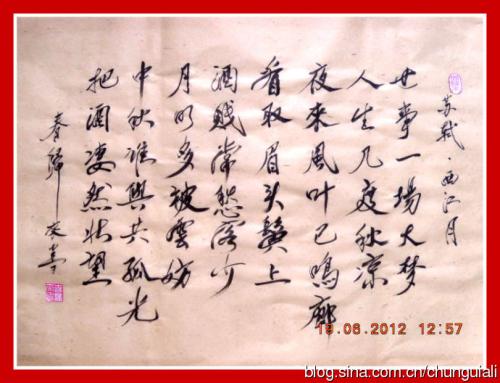 苏轼·西江月
世事一場大梦
人生几度秋凉
夜來風叶已鳴廊
看取眉头鬓上
酒贱常愁客少
月明多被雲妨
中秋谁與共孤光
把酒凄然北望
春歸
19.06.2012 12:57
blog.sina.com.cn/chunguiali